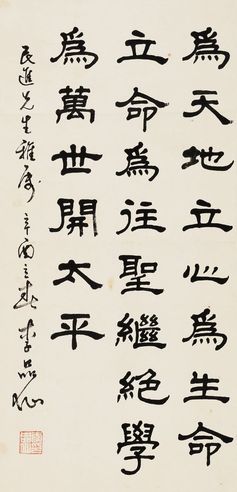 為天地立心為生命
立命為往聖繼絕學
為萬世開太平
民進先生雅屬 辛酉立春 李品仙